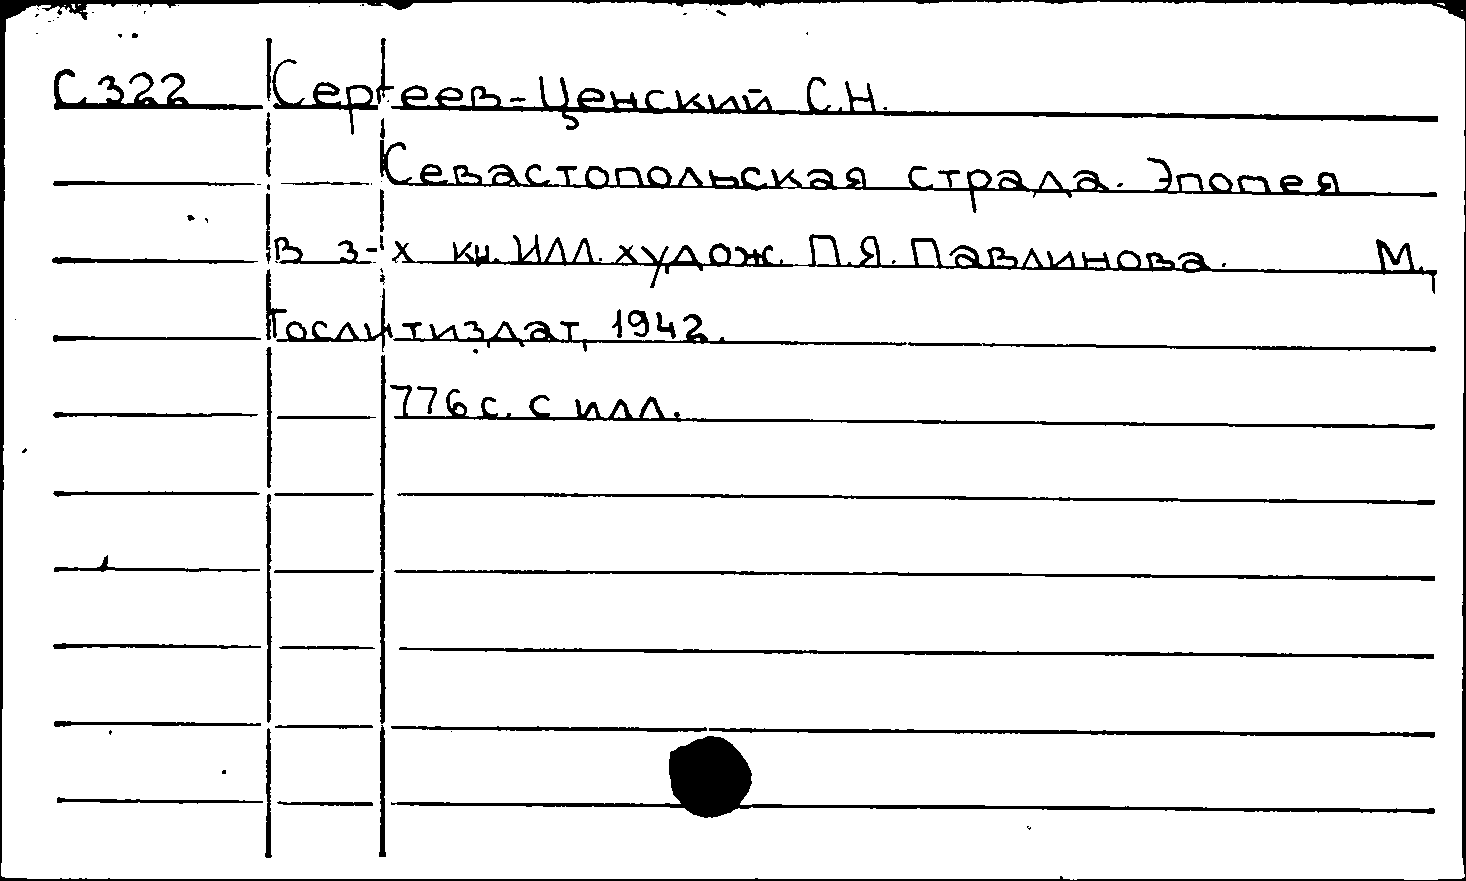 С322 Сергеев-Ценский С.Н.
Севастопольская страда. Эпопея
в 3-х кн. Илл. худож. П.Я. Павлинова. М.,
Гослитиздат, 1942.
776 с. с илл.